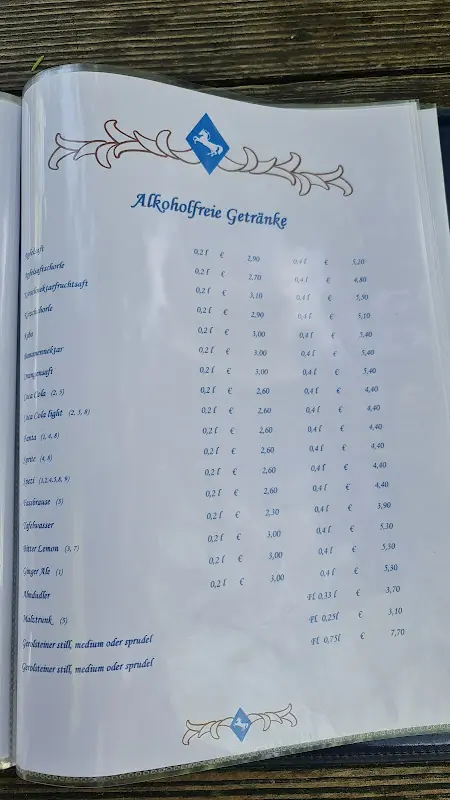 Alkoholfreie Getränke
Apfelsaft 0,2 l € 2,90 0,4 l € 5,20
Apfelsaftschorle 0,2 l € 2,70 0,4 l € 4,80
Kirschnektarfruchtsaft 0,2 l € 3,10 0,4 l € 5,50
Kirschschorle 0,2 l € 2,90 0,4 l € 5,10
Kiba 0,2 l € 3,00 0,4 l € 5,40
Bananennektar 0,2 l € 3,00 0,4 l € 5,40
Orangensaft 0,2 l € 3,00 0,4 l € 5,40
Coca Cola (2, 5) 0,2 l € 2,60 0,4 l € 4,40
Coca Cola light (2, 5, 8) 0,2 l € 2,60 0,4 l € 4,40
Fanta (1, 4, 8) 0,2 l € 2,60 0,4 l € 4,40
Sprite (4, 8) 0,2 l € 2,60 0,4 l € 4,40
Spezi (1,2,4,5,8, 9) 0,2 l € 2,60 0,4 l € 4,40
Fassbrause (5) 0,2 l € 2,30 0,4 l € 3,90
Tafelwasser 0,2 l € 3,00 0,4 l € 5,30
Bitter Lemon (3, 7) 0,2 l € 3,00 0,4 l € 5,30
Ginger Ale (1) 0,2 l € 3,00 0,4 l € 5,30
Almdudler Fl. 0,33 l € 3,70
Malztrunk (5) Fl. 0,25l € 3,10
Gerolsteiner still, medium oder sprudel Fl. 0,75l € 7,70
Gerolsteiner still, medium oder sprudel